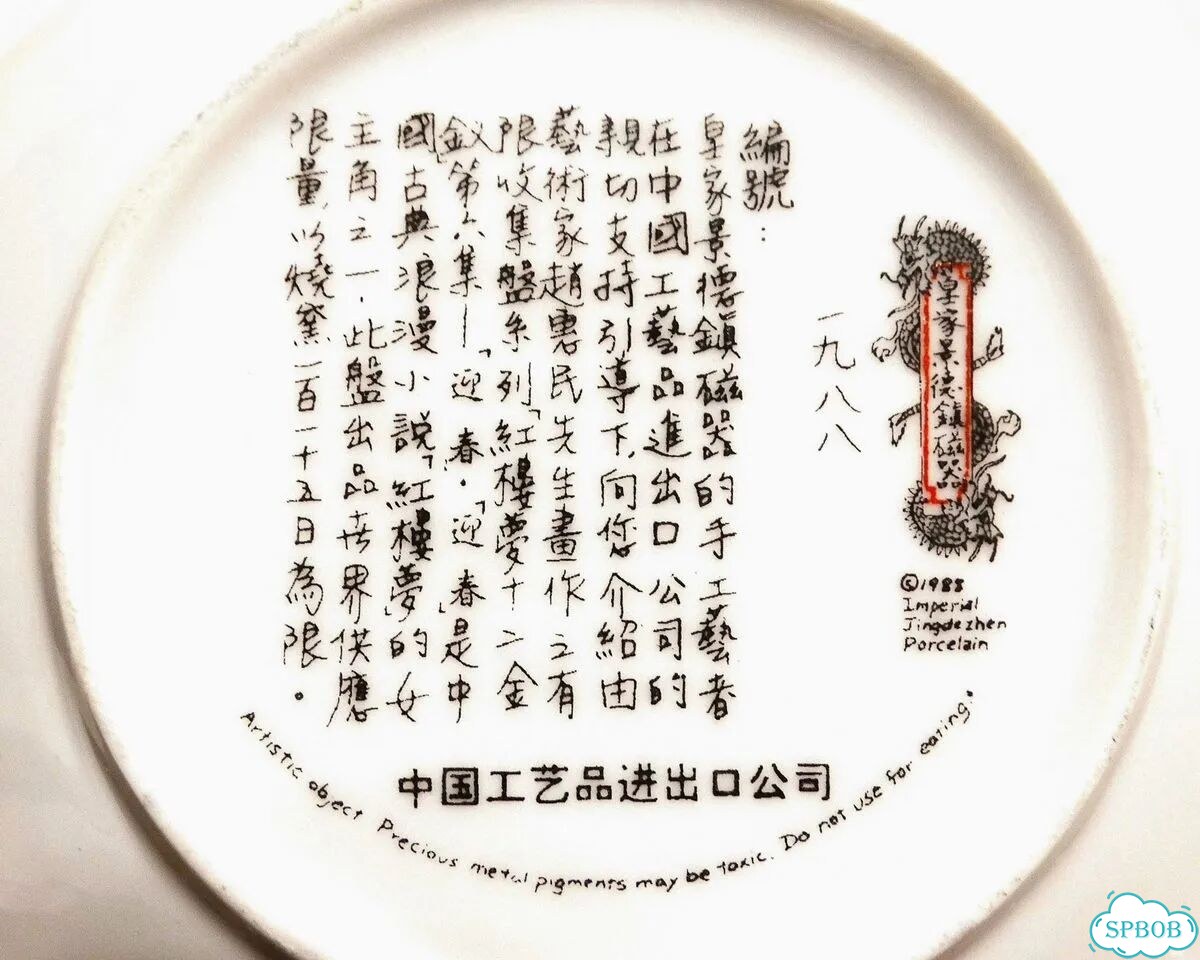 皇家景德鎮磁器
©1988
Imperial
Jingdezhen
Porcelain
一九八八
編號：
皇家景德鎮磁器的手工藝者
在中國工藝品進出口公司的
親切支持引導下，向您介紹由
藝術家趙惠民先生畫作之有
限收集盤系列「紅樓夢十二金
釵」第六集—「迎春」．「迎春」是中
國古典浪漫小說「紅樓夢」的女
主角之一．此盤出品世界供應
限量，以燒窯一百一十五日為限。
中国工艺品进出口公司
Artistic object Precious metal pigments may be toxic. Do not use for eating.
SPBOB